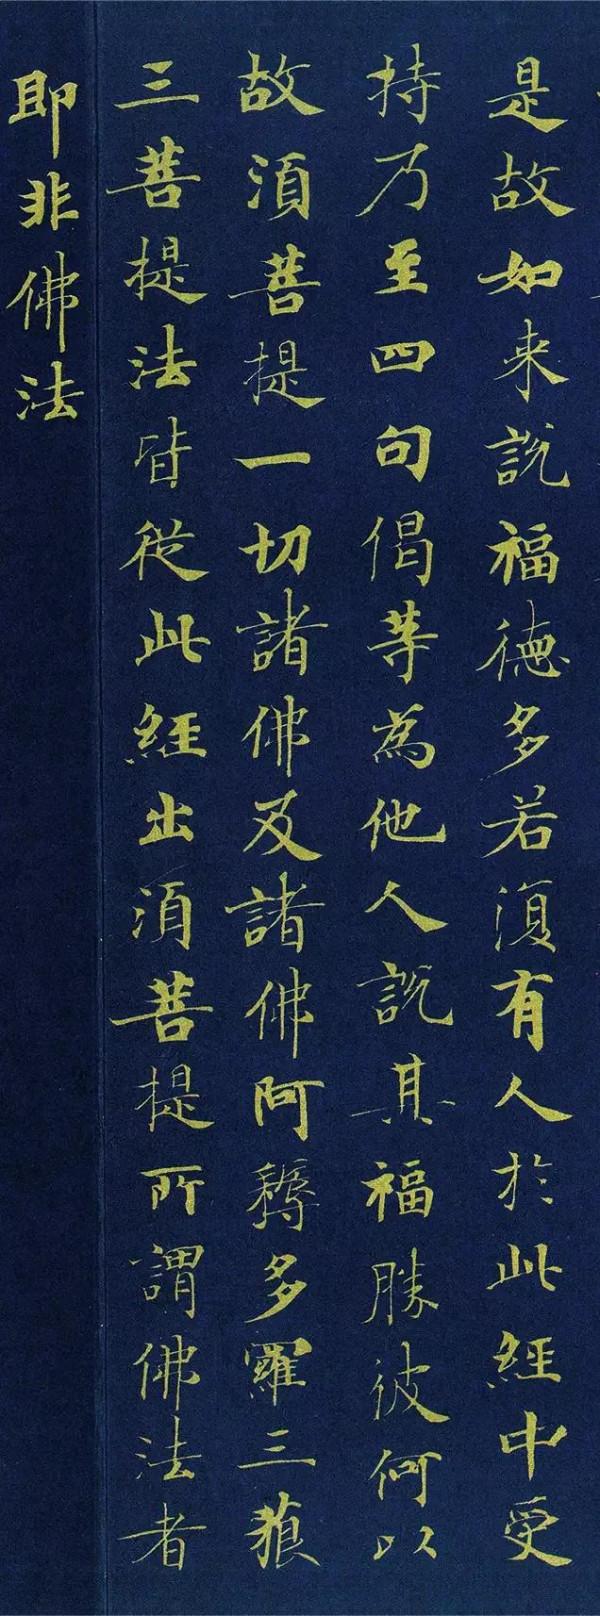 是故如来說福德多若復有人於此經中受
持乃至四句偈等為他人說其福勝彼何以
故須菩提一切諸佛及諸佛阿耨多羅三藐
三菩提法皆従此經出須菩提所謂佛法者
即非佛法